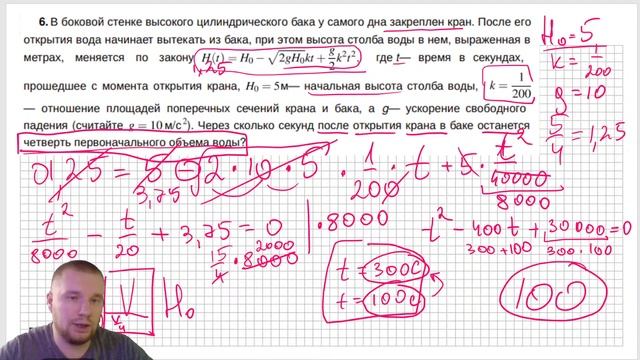 6. В боковой стенке высокого цилиндрического бака у самого дна закреплен кран. После его
открытия вода начинает вытекать из бака, при этом высота столба воды в нем, выраженная в
метрах, меняется по закону H(t) = H₀ − √(2gH₀)kt + g/2 k²t², где t— время в секундах,
1,25
прошедшее с момента открытия крана, H₀ = 5м— начальная высота столба воды, k = 1/200
— отношение площадей поперечных сечений крана и бака, а g— ускорение свободного
падения (считайте g = 10 м/с²). Через сколько секунд после открытия крана в баке останется
четверть первоначального объема воды?
H₀ = 5
k = 1/200
g = 10
5/4 = 1,25
0 1,25 = 5 − √2·10·5 · 1/200 · t + 5 · t²/40000
3,75
8000
t²/8000 − t/20 + 3,75 = 0 | · 8000
15/4 · 8000
2000
t² − 400t + 30000 = 0
300 + 100
300 · 100
t = 300с
t = 100с
100
V
V/4
H₀